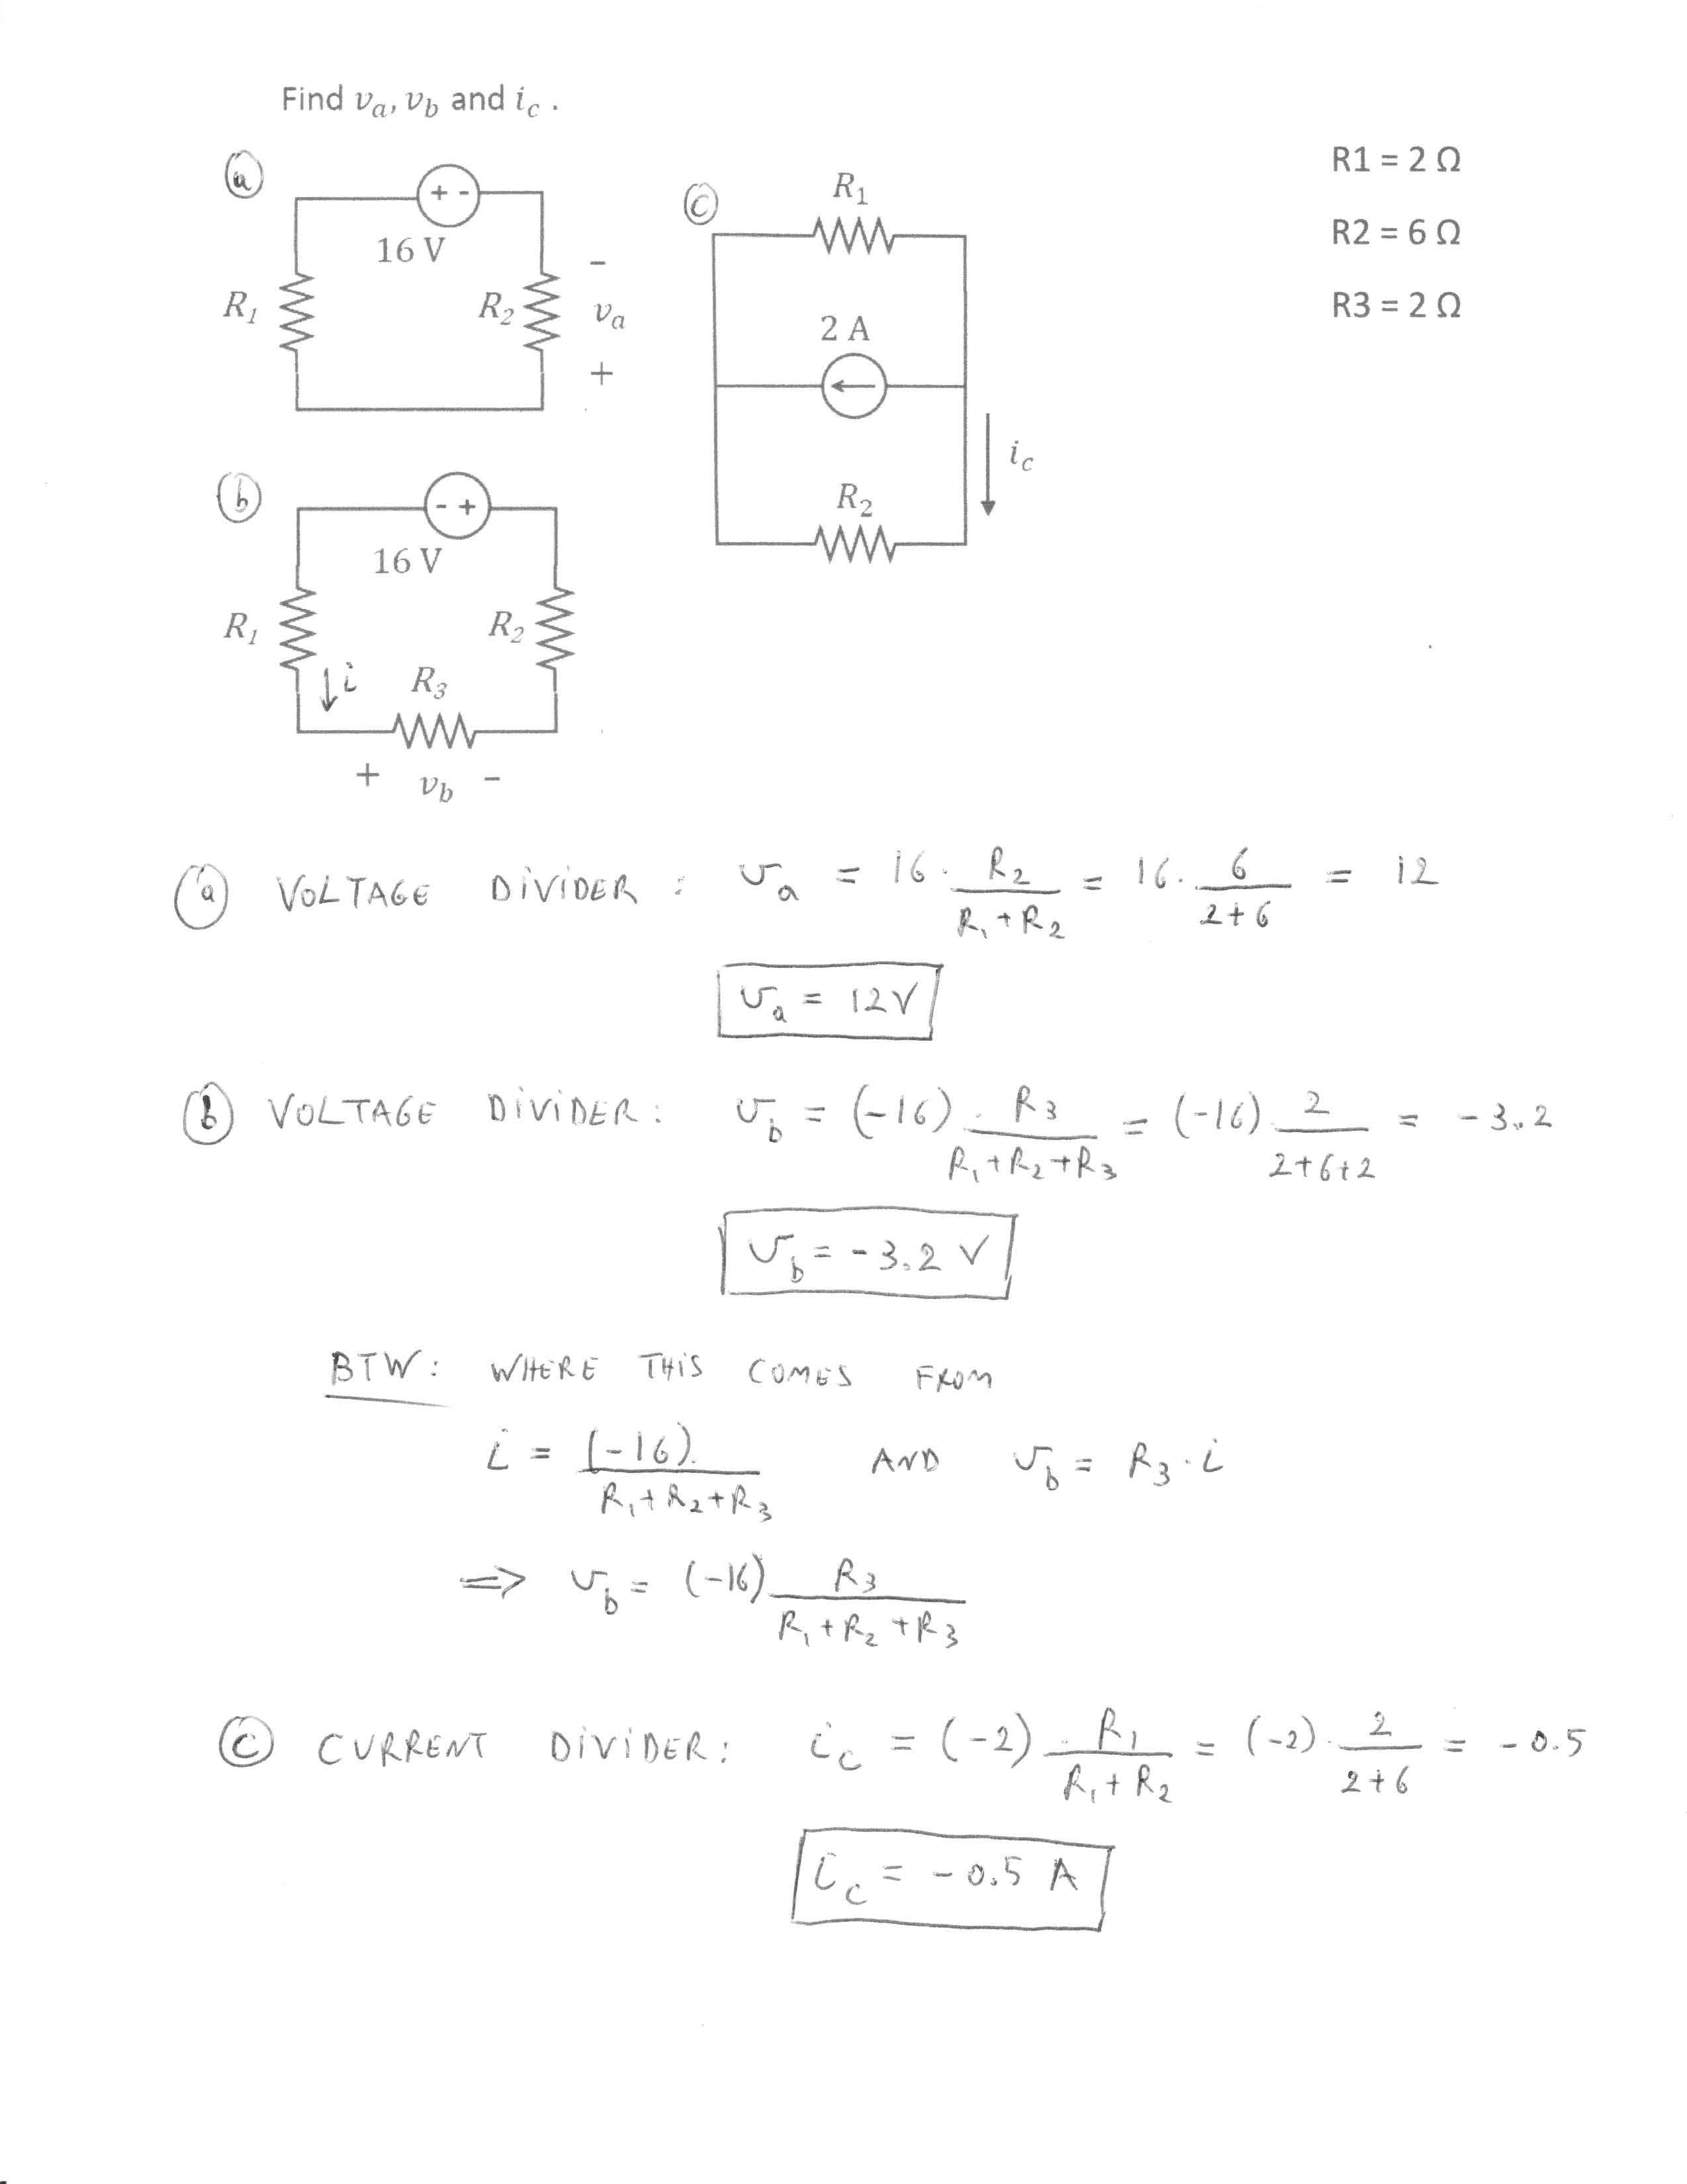 Find v_a, v_b and i_c .
R1 = 2 Ω
R2 = 6 Ω
R3 = 2 Ω
(a)
+ -
16 V
R_1
R_2
-
v_a
+
(c)
R_1
2 A
i_c
R_2
(b)
- +
16 V
R_1
R_2
i
R_3
+ v_b -
(a) VOLTAGE DIVIDER : v_a = 16 · R_2 / (R_1 + R_2) = 16 · 6 / (2+6) = 12
v_a = 12V
(b) VOLTAGE DIVIDER : v_b = (-16) · R_3 / (R_1 + R_2 + R_3) = (-16) · 2 / (2+6+2) = -3.2
v_b = -3.2 V
BTW : WHERE THIS COMES FROM
i = (-16) / (R_1 + R_2 + R_3) AND v_b = R_3 · i
=> v_b = (-16) · R_3 / (R_1 + R_2 + R_3)
(c) CURRENT DIVIDER : i_c = (-2) · R_1 / (R_1 + R_2) = (-2) · 2 / (2+6) = -0.5
i_c = -0.5 A